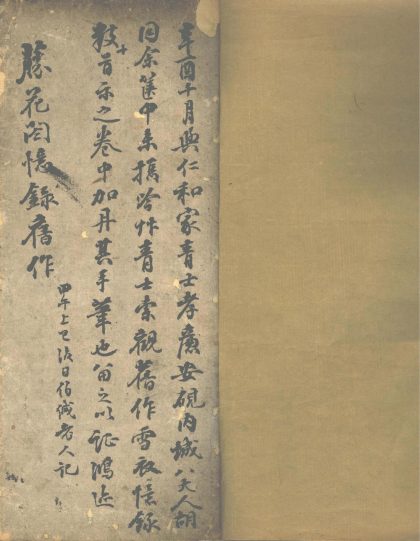 辛酉十月與仁和家青士孝廉安硯內城八大人胡
同余篋中未攜吟艸青士索觀舊作雪夜憶錄
數十首示之卷中加丹其手筆也留之以證鴻迹
藤花閣憶錄舊作
甲午上巳後日伯緘老人記